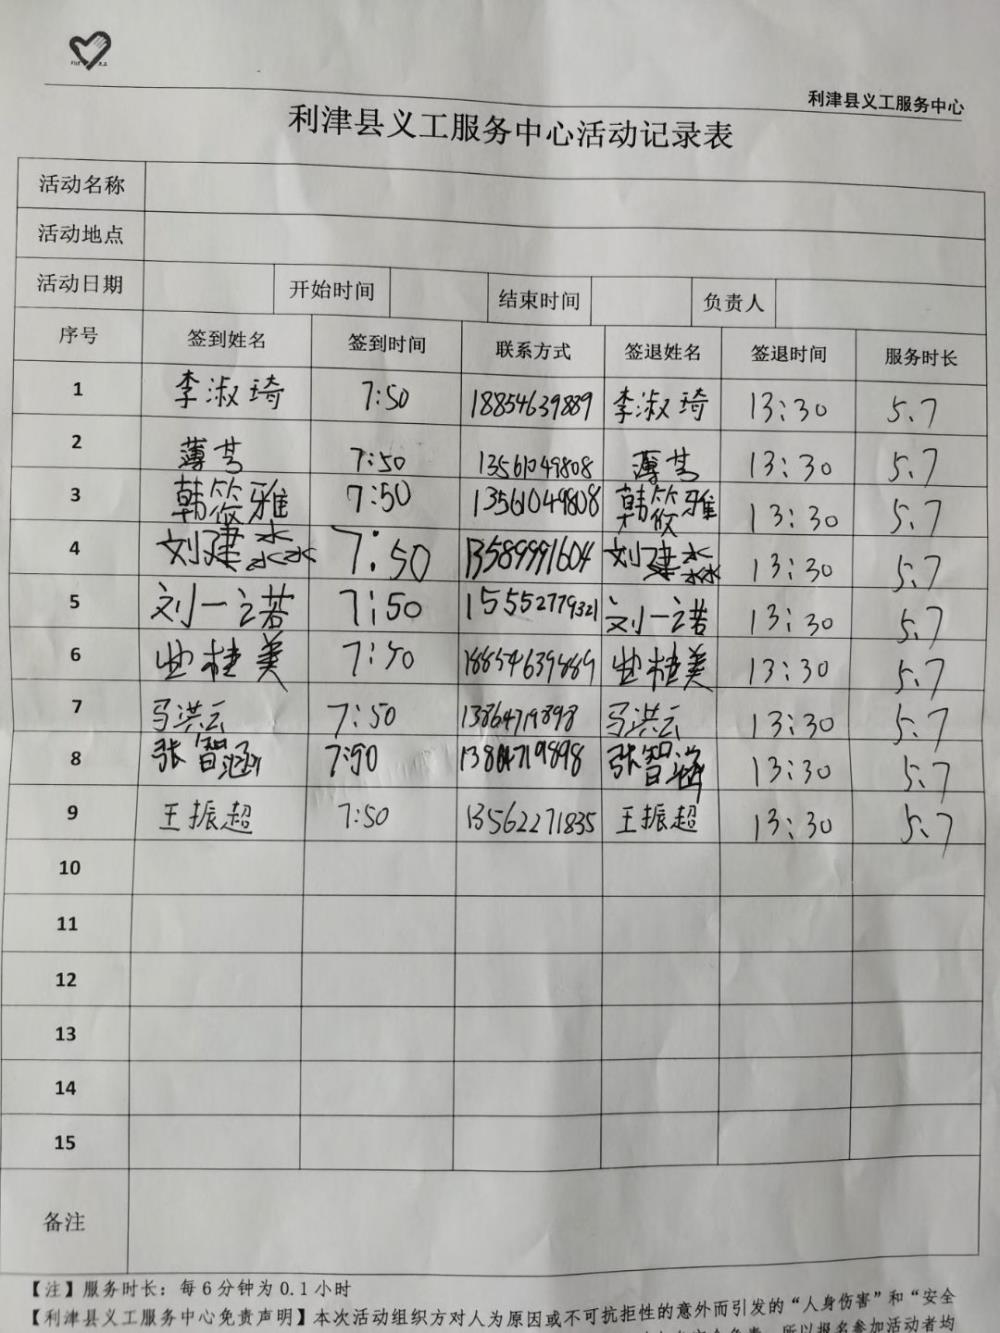 利津县义工服务中心
利津县义工服务中心活动记录表
活动名称
活动地点
活动日期 开始时间 结束时间 负责人
序号 签到姓名 签到时间 联系方式 签退姓名 签退时间 服务时长
1 李淑琦 7:50 18854639889 李淑琦 13:30 5.7
2 薄芸 7:50 13561049808 薄芸 13:30 5.7
3 韩筱雅 7:50 13561049808 韩筱雅 13:30 5.7
4 刘建淼 7:50 13589991604 刘建淼 13:30 5.7
5 刘一诺 7:50 15552779321 刘一诺 13:30 5.7
6 桂美 7:50 18854639889 桂美 13:30 5.7
7 马洪云 7:50 13864719898 马洪云 13:30 5.7
8 张智涵 7:50 13864719898 张智涵 13:30 5.7
9 王振超 7:50 13562271835 王振超 13:30 5.7
10
11
12
13
14
15
备注
【注】服务时长：每6分钟为0.1小时
【利津县义工服务中心免责声明】本次活动组织方对人为原因或不可抗拒性的意外而引发的“人身伤害”和“安全
所以报名参加活动者均